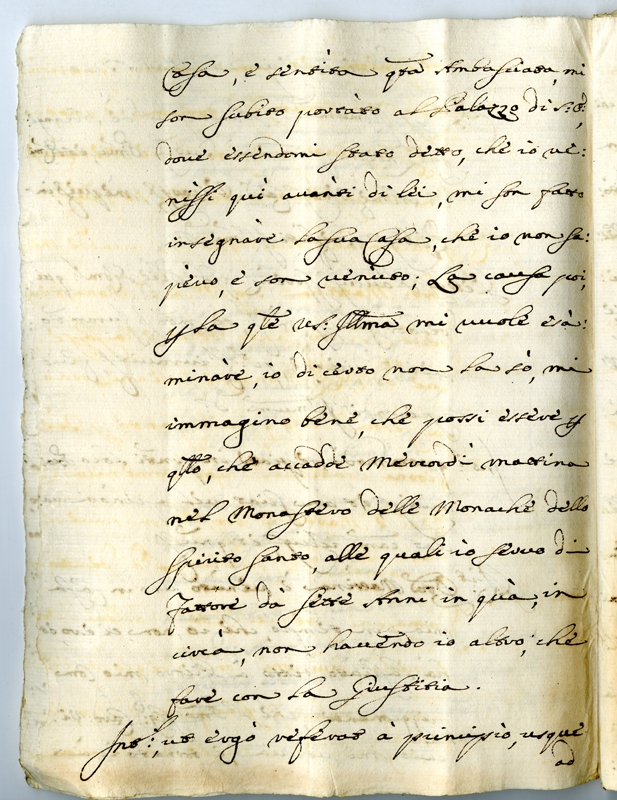 Casa, e sentita q̃ta Ambasciata, mi
son subito portato al Palazzo di S: E:
dove essendomi stato detto, che io ve:
nissi quì avanti di lei, mi son fatto
insegnare la sua Casa, che io non sa:
pevo, e son venuto; La causa poi,
p la q̃le VS: Ill̃ma mi vuole esà:
minare, io di certo non la sò, mi
immagino bene, che possi essere p
q̃llo, che accadde Mercordì mattina
nel Monastero delle Monache dello
Spirito Santo, alle quali io servo di
Fattore dà Sette Anni in quà, in
circà, non havendo io altro, che
fare con la Giustitia.
Int:, ut ergò referat à principiò, usque
ad